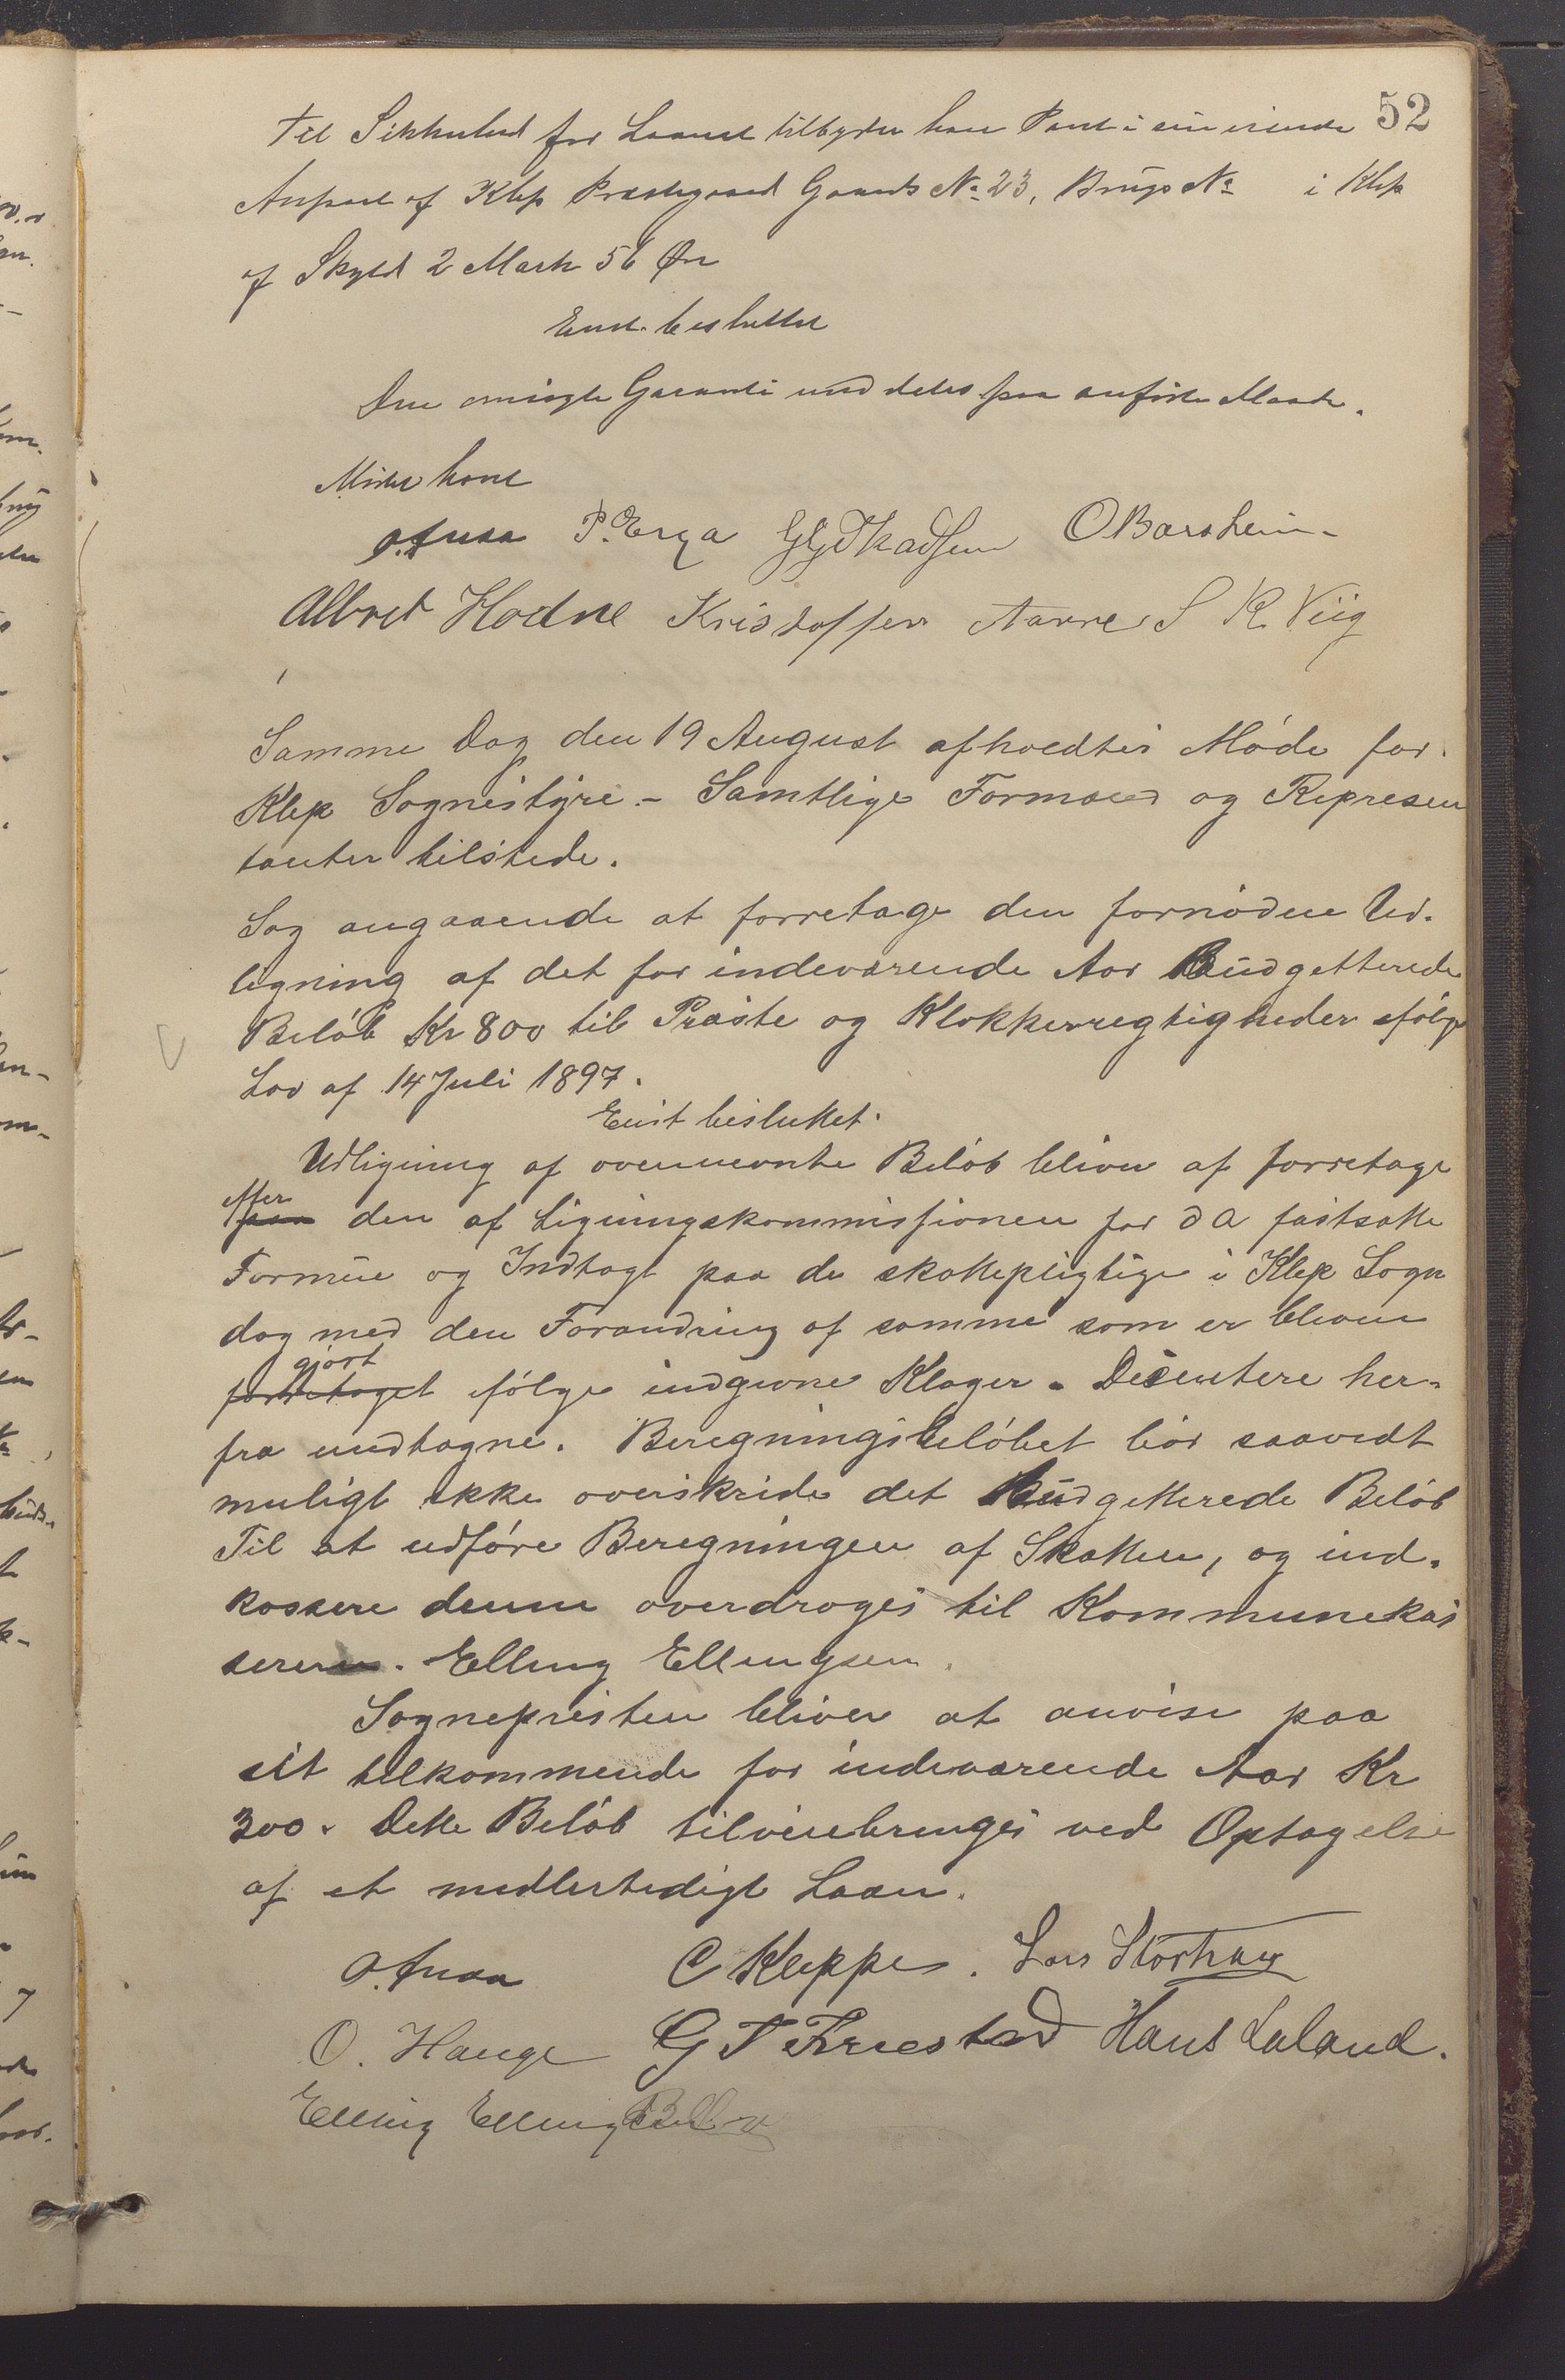 52
Til Sikkerhed for Laanet tilbydes han Pant i sin eiende
Anpart af Klep Præstegaard Gaards No 23, Brugs No i Klep
af Skyld 2 Mark 56 Øre
Enst. besluttet
Den omsøgte Garanti meddeles paa anførte Maade.
Mødet hævet
O. Anda P. Erga O Borsheim
Albret Hodne Kristoffer Aarre S R Viig
Samme Dag den 19 August afholdtes Møde for
Klep Sognestyre. - Samtlige Formænd og Represen
tanter tilstede.
Sag angaaende at forretage den fornødne Ud-
ligning af det for indeværende Aar Budgetterede
Beløb Kr 800 til Præste og Klokkerregtigheder ifølge
Lov af 14 Juli 1897.
Enst besluttet.
Udligning af ovennevnte Beløb bliver at forretage
efter
paa den af Ligningskommissionen for d A fastsatte
Formue og Indtægt paa de skattepligtige i Klep Sogn
dog med den Forandring af samme som er bleven
gjort
forretaget ifølge indgivne Klager. Disentere her-
fra undtagne. Beregningsbeløbet bør saavidt
muligt ikke overskride det Budgetterede Beløb
Til at udføre Beregningen af Skatten, og ind-
kassere denne overdroges til Kommunekas
serer. Elling Ellingsen.
Sognepresten bliver at anvise paa
sit tilkommende for indeværende Aar Kr
300. Dette Beløb tilveiebringes ved Optagelse
af et medlertidigt Laan.
O. Anda C Kleppe. Lars Storhaug
O. Hauge G T Friestad Hans Laland.
Elling Ellingsen